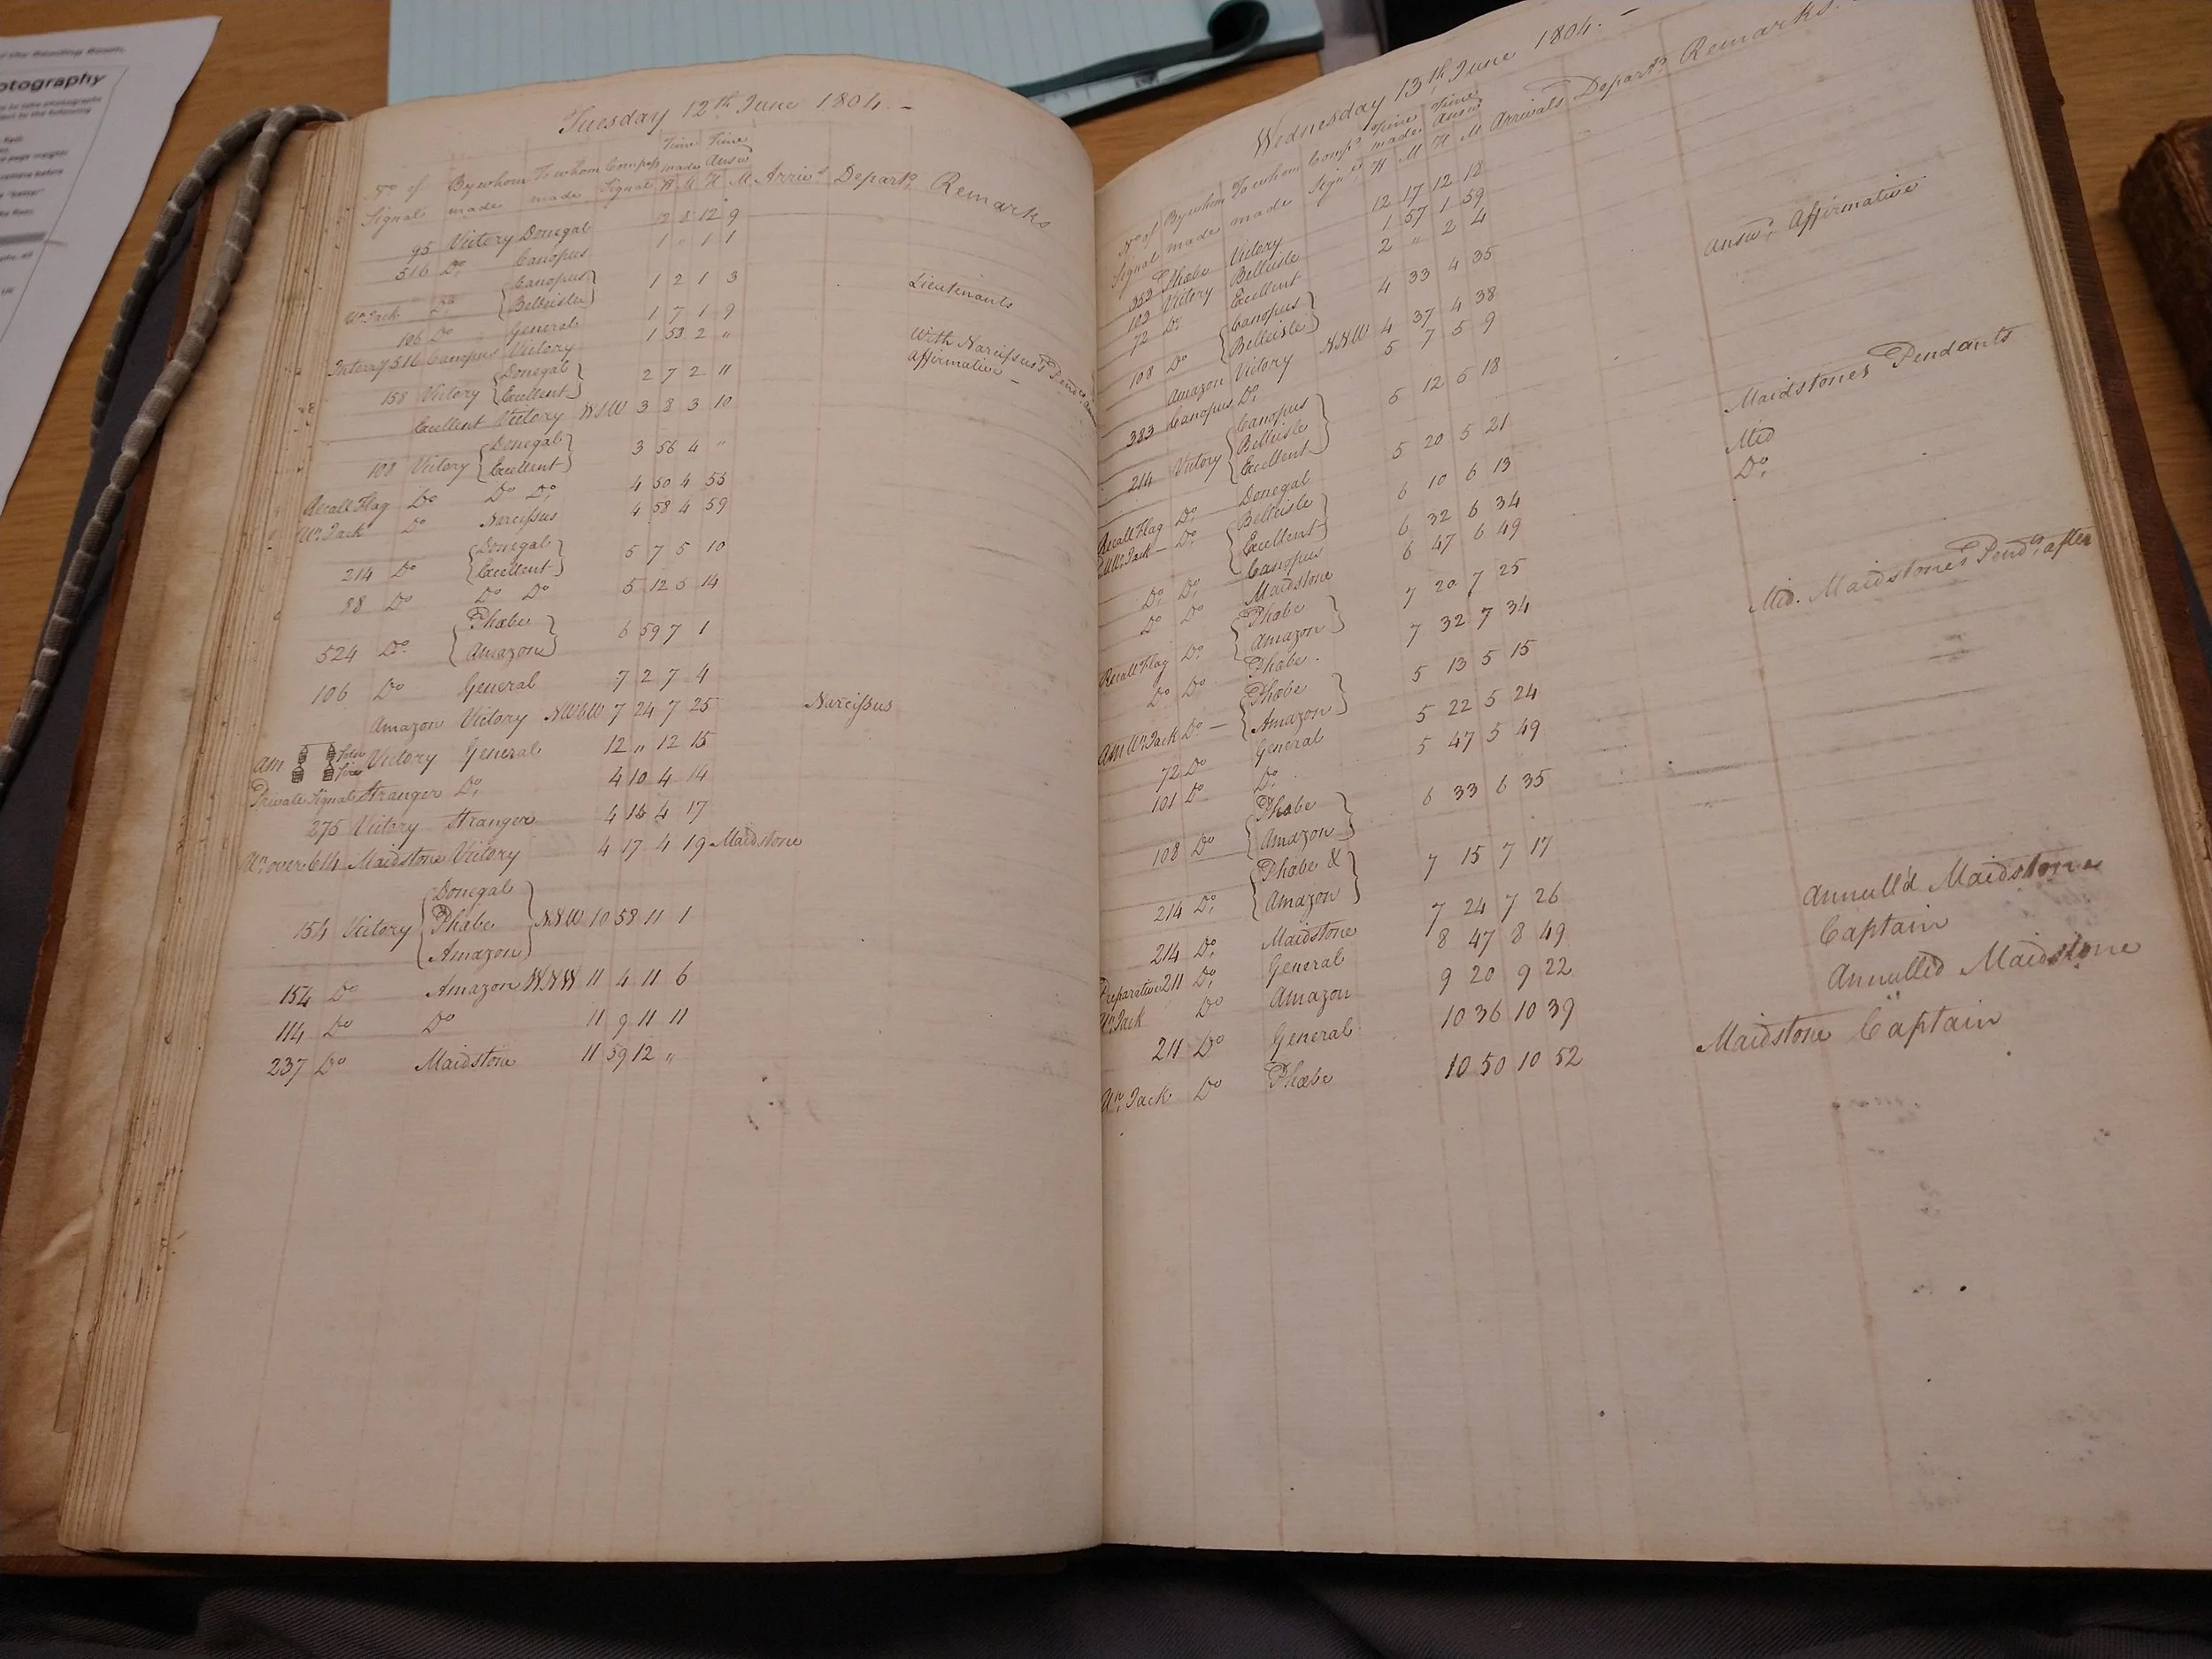 of the Reading Room.
otography
Tuesday 12th June 1804. -
Time Time
No of By whom To whom Compass made Answ
Signal made made Signal H M H M Arriv.s Depart.s Remarks
95 Victory Donegal 12 8 12 9
516 Do Canopus 1 " 1 1
Un. Jack Do { Canopus Belleisle } 1 2 1 3 Lieutenants
106 Do General 1 7 1 9
Interry 516 Canopus Victory 1 58 2 " With Narcissus's
affirmative -
158 Victory { Donegal Excellent } 2 7 2 11
Excellent Victory WSW 3 8 3 10
108 Victory { Donegal Excellent } 3 56 4 "
Recall Flag Do Do Do 4 50 4 55
Un. Jack Do Narcissus 4 58 4 59
214 Do { Donegal Excellent } 5 7 5 10
88 Do Do Do 5 12 5 14
524 Do { Phœbe Amazon } 6 59 7 1
106 Do General 7 2 7 4
Amazon Victory NWbW 7 24 7 25 Narcissus
AM Victory General 12 " 12 15
Private Signal Stranger Do 4 10 4 14
275 Victory Stranger 4 16 4 17
Un. over 614 Maidstone Victory 4 17 4 19 Maidstone
154 Victory { Donegal Phœbe Amazon } NNW 10 58 11 1
154 Do Amazon WNW 11 4 11 6
114 Do Do 11 9 11 11
237 Do Maidstone 11 59 12 "
Wednesday 13th June 1804. -
Time Time
No of By whom To whom Comps made Answ
Signal made made Signs H M H M Arrivals Depart.s Remarks.
353 Phœbe Victory 12 17 12 18
103 Victory Belleisle 1 57 1 59
72 Do Excellent 2 " 2 4 Answ. Affirmative
108 Do { Canopus Belleisle } 4 33 4 35
Amazon Victory NNW 4 37 4 38
383 Canopus Do 5 7 5 9
214 Victory { Canopus Belleisle Excellent } 5 12 5 18 Maidstones Pendants
Recall Flag Do Donegal 5 20 5 21 Mid
Un. Jack - Do { Belleisle Excellent } 6 10 6 13 Do
Do Do Canopus 6 32 6 34
Do Do Maidstone 6 47 6 49 Mid. Maidstones Pendts after
Recall Flag Do { Phœbe Amazon } 7 20 7 25
Do Do Phœbe. 7 32 7 34
AM Un. Jack Do - { Phœbe Amazon } 5 13 5 15
72 Do General 5 22 5 24
101 Do Do 5 47 5 49
108 Do { Phœbe Amazon } 6 33 6 35
214 Do { Phœbe & Amazon } 7 15 7 17
214 Do Maidstone 7 24 7 26 Annull'd Maidstone
Preparative 211 Do General 8 47 8 49 Captain
Un. Jack Do Amazon 9 20 9 22 Annulled Maidstone
211 Do General 10 36 10 39 Maidstone Captain
Un. Jack Do Phœbe 10 50 10 52